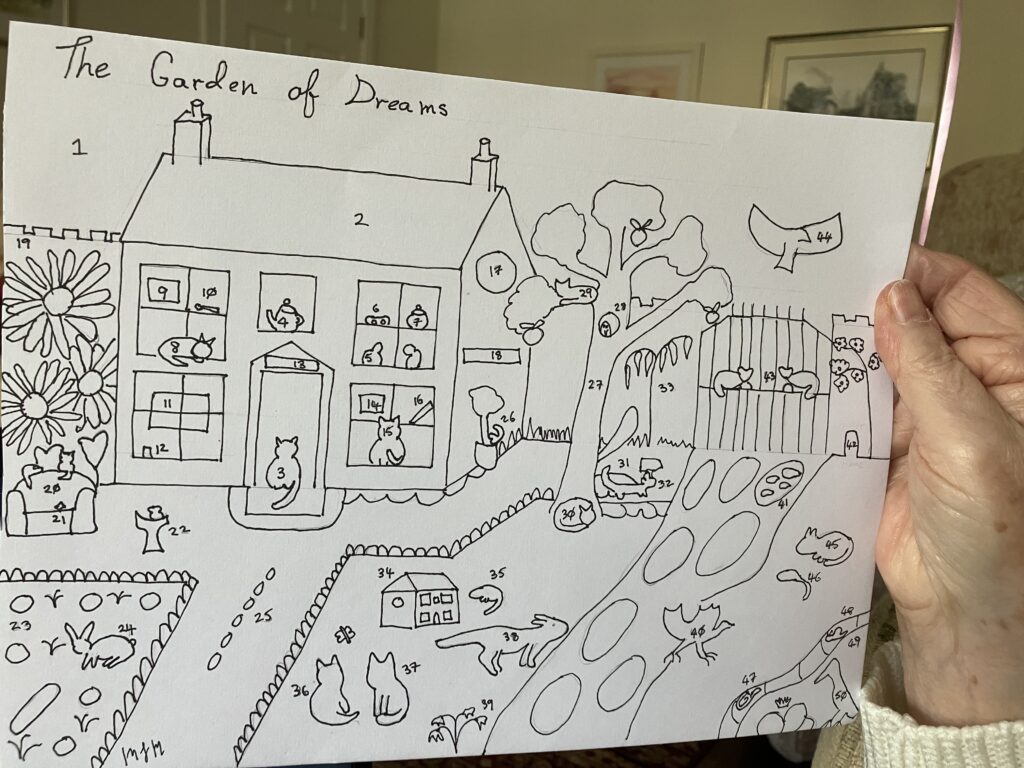 The Garden of Dreams
1
2
19
17
44
9
10
4
6
7
29
28
8
13
5
18
43
11
14
16
27
33
12
15
26
3
42
20
31
32
21
41
22
30
45
34
35
46
23
24
25
38
40
48
49
36
37
47
50
39
MJM